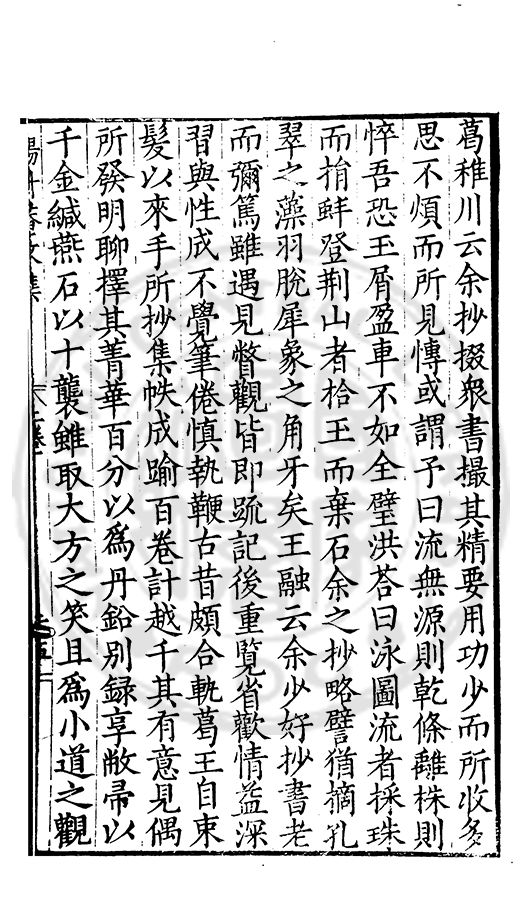 葛稚川云余抄掇衆書撮其精要用功少而所收多
思不煩而所見博或謂予曰流無源則乾條離株則
悴吾恐玉屑盈車不如全璧洪荅曰泳圓流者採珠
而捐蚌登荆山者拾玉而棄石余之抄略譬猶摘孔
翠之藻羽脫犀象之角牙矣王融云余少好抄書老
而彌篤雖遇見瞥觀皆即疏記後重覽省歡情益深
習與性成不覺筆倦慎執鞭古昔頗合軌葛王自束
髮以來手所抄集帙成踰百卷計越千其有意見偶
所發明聊擇其菁華百分以爲丹鉛别録享敝帚以
千金緘燕石以十襲雖取大方之笑且爲小道之觀